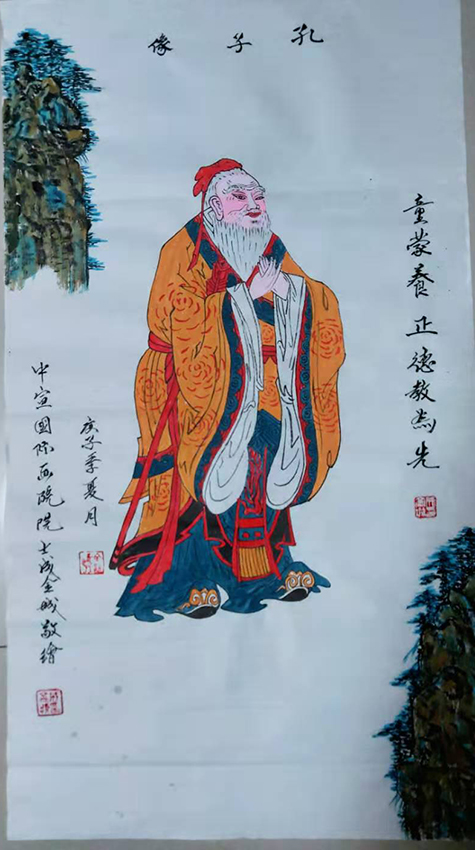 孔子像
童蒙养正德教为先
庚子季夏月
中宣国际画院院士成全城敬绘